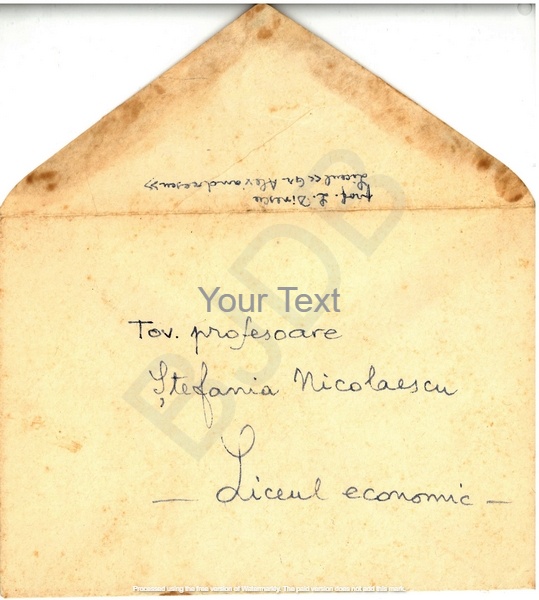 prof. L. Dinescu
Liceul «Gr. Alexandrescu»
BJDB
Your Text
Tov. profesoare
Ștefania Nicolaescu
Liceul economic
Processed using the free version of Watermarkly. The paid version does not add this mark.